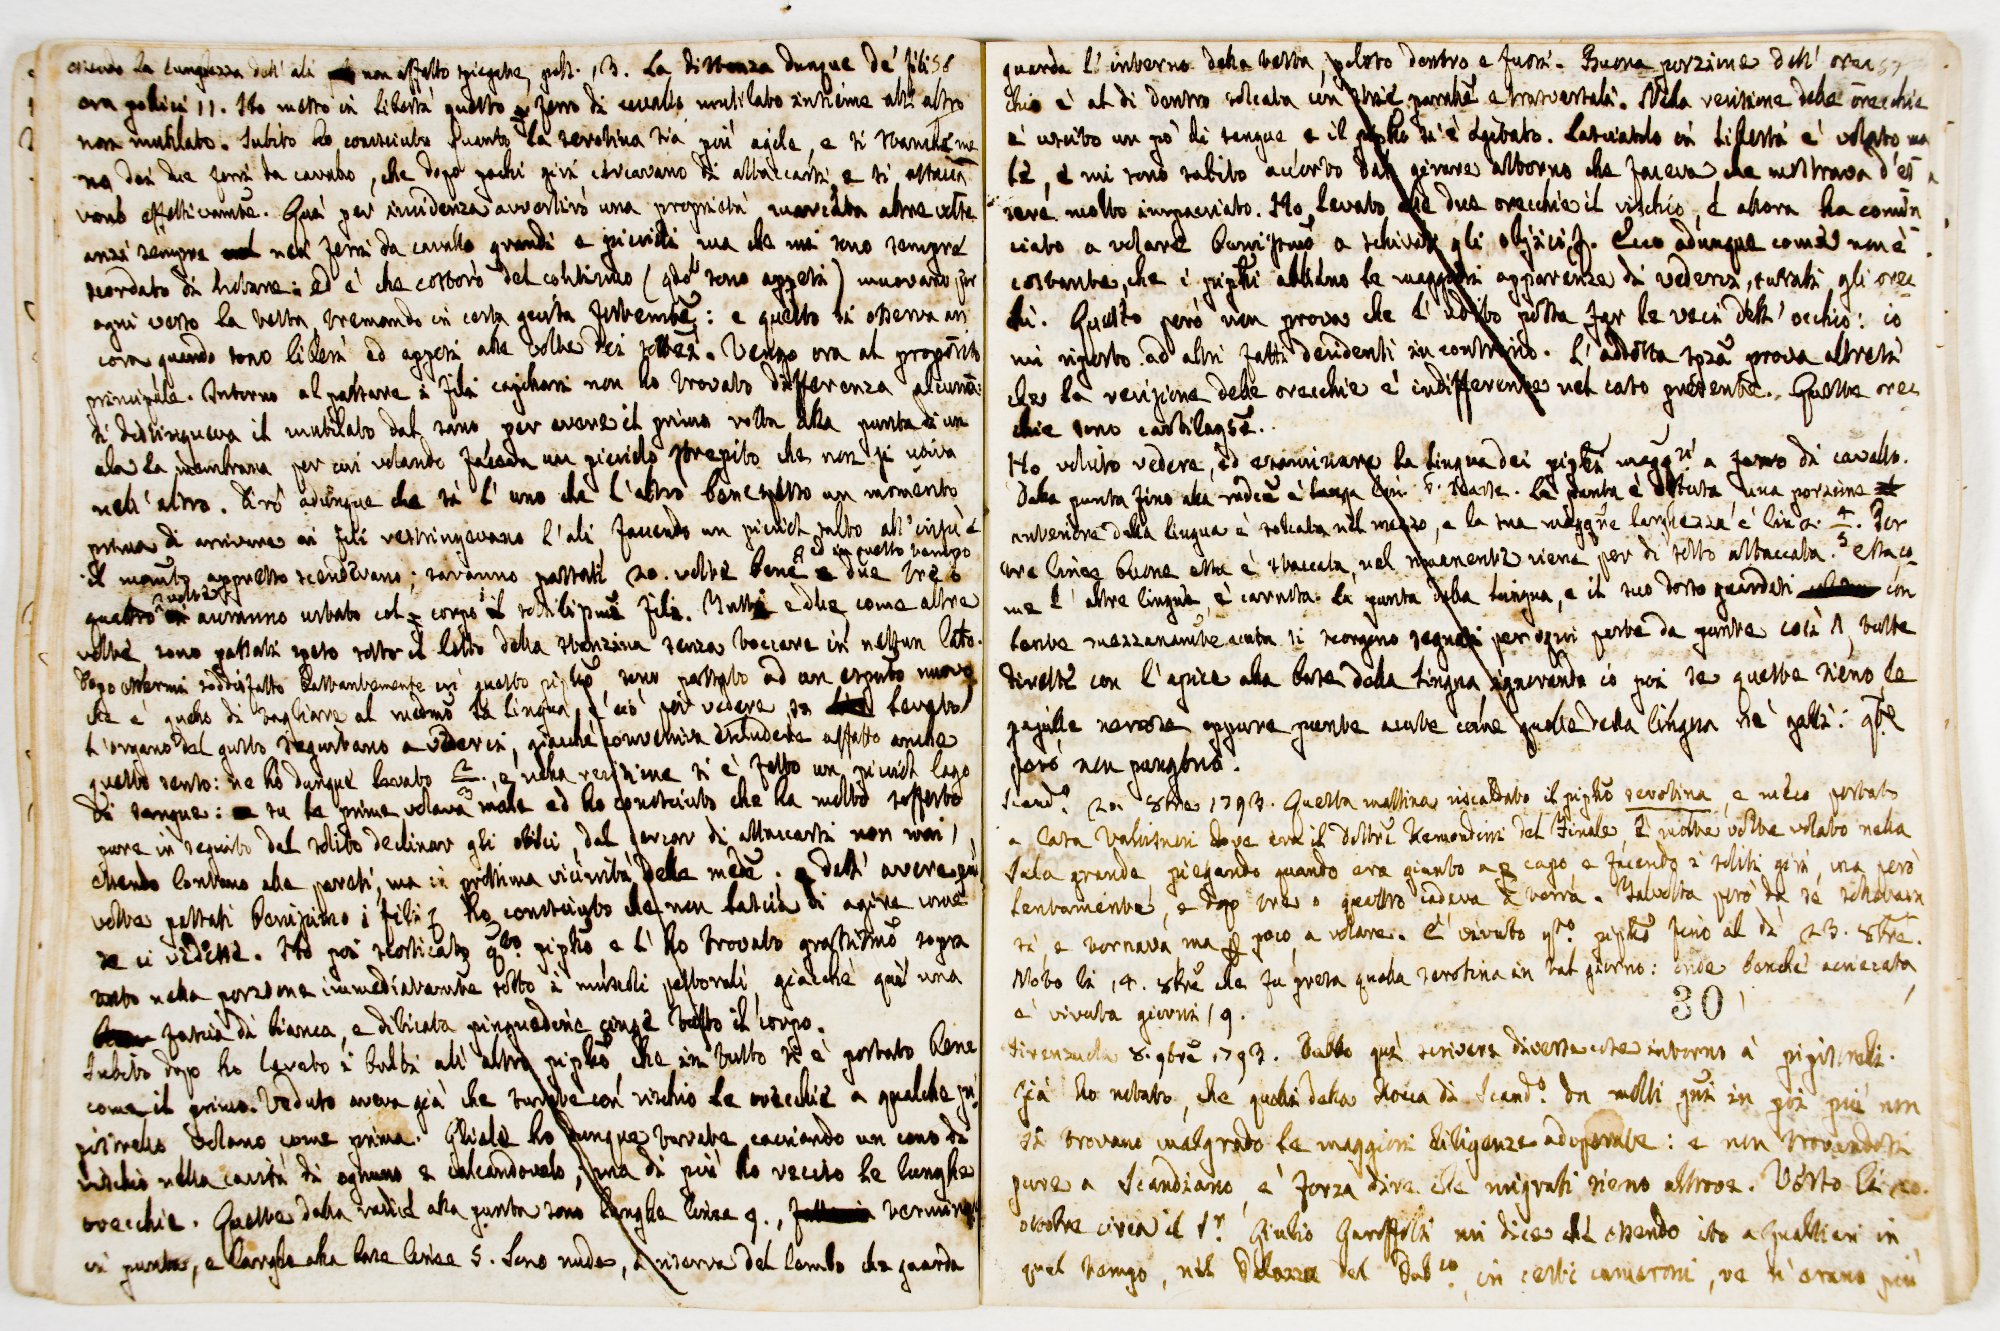 essendo la lunghezza dell' ali non affatto spiegate, poll. 13. La distanza dunque de' fili 56
era pollici 11. Ho messo in libertà questo ferro di cavallo mutilato insieme all' altro
non mutilato. Subito ho conosciuto quanto la serotina sia più agile, e si stanchi me
no dei due ferri da cavallo, che dopo pochi giri cercavano di attaccarsi, e si attacca
vano effettivamte. Quì per incidenza avvertirò una proprietà marcata altre volte
anzi sempre nei ferri da cavallo grandi e piccioli ma che mi sono sempre
scordato di notare: ed è che costoro del continuo (qdo sono appesi) muovano per
ogni verso la testa, tremando in certa guisa : e questo si osserva an
cora quando sono liberi ed appesi alle volte dei . Vengo ora al proposito
principale. Intorno al passare i fili non ho trovato differenza alcuna:
si distingueva il mutilato dal sano per avere il primo rotta alla punta di un
ala la membrana per cui volando faceva un picciolo strepito che non si udiva
nell' altro. Dirò adunque che sì l' uno che l' altro bene spesso un momento
prima di arrivare ai fili restringevano l' ali facendo un picciol salto all' insù e
il momto appresso scendevano; saranno passati 20. volte bene e due tre o ed in questo tempo
quattro volte avranno urtato col corpo i sottilissimi fili. Tutti e due, come altre
volte sono passati sotto il letto della stanzina senza toccare in nessun lato.
Dopo essermi soddisfatto bastantemente in questo piplo sono passato ad un esperto nuovo
che è quello di tagliare al medmo la lingua, e ciò per vedere se levato
l'organo del gusto seguitano a vederci, giacchè conveniva escludere affatto anche
questo senso: ne ho dunque levato 2/3. e nella recisione si è fatto un picciol lago
di sangue: su le prime volava male ed ho conosciuto che ha molto sofferto
pure in seguito dal solito declinar gli obici, dal cercar di attaccarsi non mai
essendo lontano alle pareti, ma in prossima vicinità delle medme. dall' avere più
volte passati benissimo i fili ho conosciuto che non lascia di agire come
se ci vedesse. Ho poi scorticato qto piplo e l' ho trovato grassissimo sopra
tutto nella porzione immediatamte sotto i muscoli pettorali giacchè quì una
fascia di bianca, e dilicata pinguedine cinge tutto il corpo.
Subito dopo ho levato i bulbi all' altro piplo, che in tutto si è portato bene
come il primo. Veduto aveva già che turate con vischio le orecchie a qualche pi
pistrello volano come prima. Gliele ho dunque turate, cacciando un cono di
vischio nella cavità di ognuna e calcandovelo; ma di più ho reciso le lunghe
orecchie. Queste dalla radice alla punta sono lunghe linee 9.,
in punta, e larghe alla base linee 5. Sono nude, a riserva del lembo che guarda
guarda l' interno della testa, peloso dentro e fuori. Buona porzione dell' orec 57
chio è al di dentro solcata con strie paralle e trasversali. Nella recisione delle orecchie
è uscito un pò di sangue e il piplo si è agitato. Lasciatolo in libertà è volato ma
le, e mi sono subito accorto dal girare attorno che faceva che mostrava d' es
sere molto impacciato. Ho levato alle due orecchie il vischio, e allora ha comin
ciato a volare benissimo a schivare gli obici. Ecco adunque come non è
costante che i pipli abbiano le maggiori apparenze di vederci, turati gli orec
chi. Questo però non prova che l' udito possa far le veci dell' occhio: io
mi riporto ad altri fatti decidenti in contrario. L' addotta spza prova altresì
che la recisione delle orecchie è indifferente nel caso presente. Queste orec
chie sono cartilagse.
Ho voluto vedere, ed esaminare la lingua dei pipli maggri a ferro di cavallo.
Dalla punta fino alla radice è lunga lin. 5. scarse. La punta è ottusa, una porzione
anteriore della lingua è solcata nel mezzo, e la sua maggre larghezza è lin 2. 4/5. Per
tre linee buone essa è staccata, nel rimanente viene per di sotto attaccata. Essa co
me l' altre lingue, è carnosa. La punta della lingua, e il suo dorso guardati con
lente mezzanamte acuta si scorgono segnati per ogni parte da punte così Λ, tutte
dirette con l' apice alla base della lingua, ignorando io poi se queste sieno le
papille nervose oppure punte acute come quelle della lingua ne' gatti: qte
però non pungono.
Scando 20. 8bre 1793. Questa mattina riscaldato il piplo serotina, e meco portato
a casa Valisneri dove era il dottre Remondini del Finale è molte volte volato nella
Sala grande piegando quando era giunto a capo e facendo i soliti giri, ma però
lentamente, e dopo tre o quattro cadeva a terra. Talvolta però da sè sollevava
si, e tornava, ma p poco, a volare. È vivuto qto piplo fino al dì 23. 8bre.
Noto li 4. 8bre che fu presa quella serotina in tal giorno: onde benchè acciecata,
è vivuta giorni 19.
30
Firenzuola 8. 9bre 1793. Debbo quì scrivere diverse cose intorno a' pipistrelli.
Già ho notato, che quelli della Rocca di Scando da molti gni in poi più non
si trovano malgrado le maggiori diligenze adoperate: e non trovandosi
pure a Scandiano, è forza dire che migrati sieno altrove. Verso li
ottobre circa il Sr. Giulio mi dice che essendo ito a Gualtieri in
quel tempo, nel Palazzo del Pubco, in certi cameroni, ve n' erano più